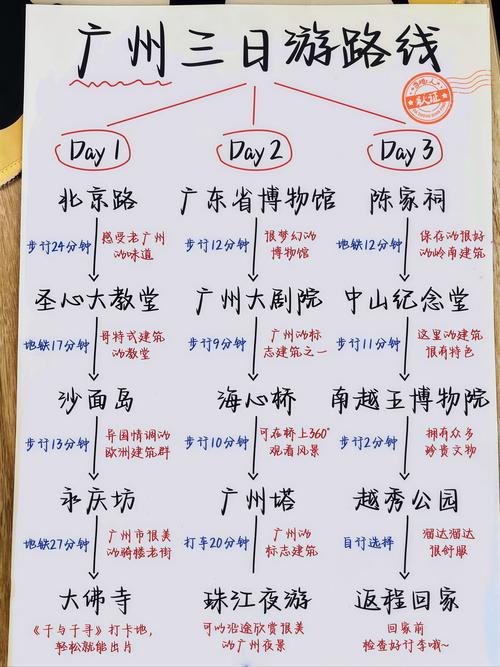 广州三日游路线
认证
Day 1
Day 2
Day 3
北京路
步行24分钟
感受老广州
的味道
圣心大教堂
地铁17分钟
哥特式建筑
的教堂
沙面岛
步行13分钟
异国情调的
欧洲建筑群
永庆坊
地铁27分钟
广州市很美
的骑楼老街
大佛寺
《千与千寻》打卡地，
轻松就能出片
广东省博物馆
步行12分钟
很梦幻的
博物馆
广州大剧院
步行9分钟
广州的标
志建筑之一
海心桥
步行10分钟
可在桥上360°
观看风景
广州塔
打车20分钟
广州的
标志建筑
珠江夜游
可以沿途欣赏很美
的广州夜景
陈家祠
地铁12分钟
保存的很好
的岭南建筑
中山纪念堂
步行11分钟
这里的建筑
很有特色
南越王博物院
步行2分钟
拥有众多
珍贵文物
越秀公园
自行选择
溜达溜达
很舒服
返程回家
回家前
检查好行李哦~